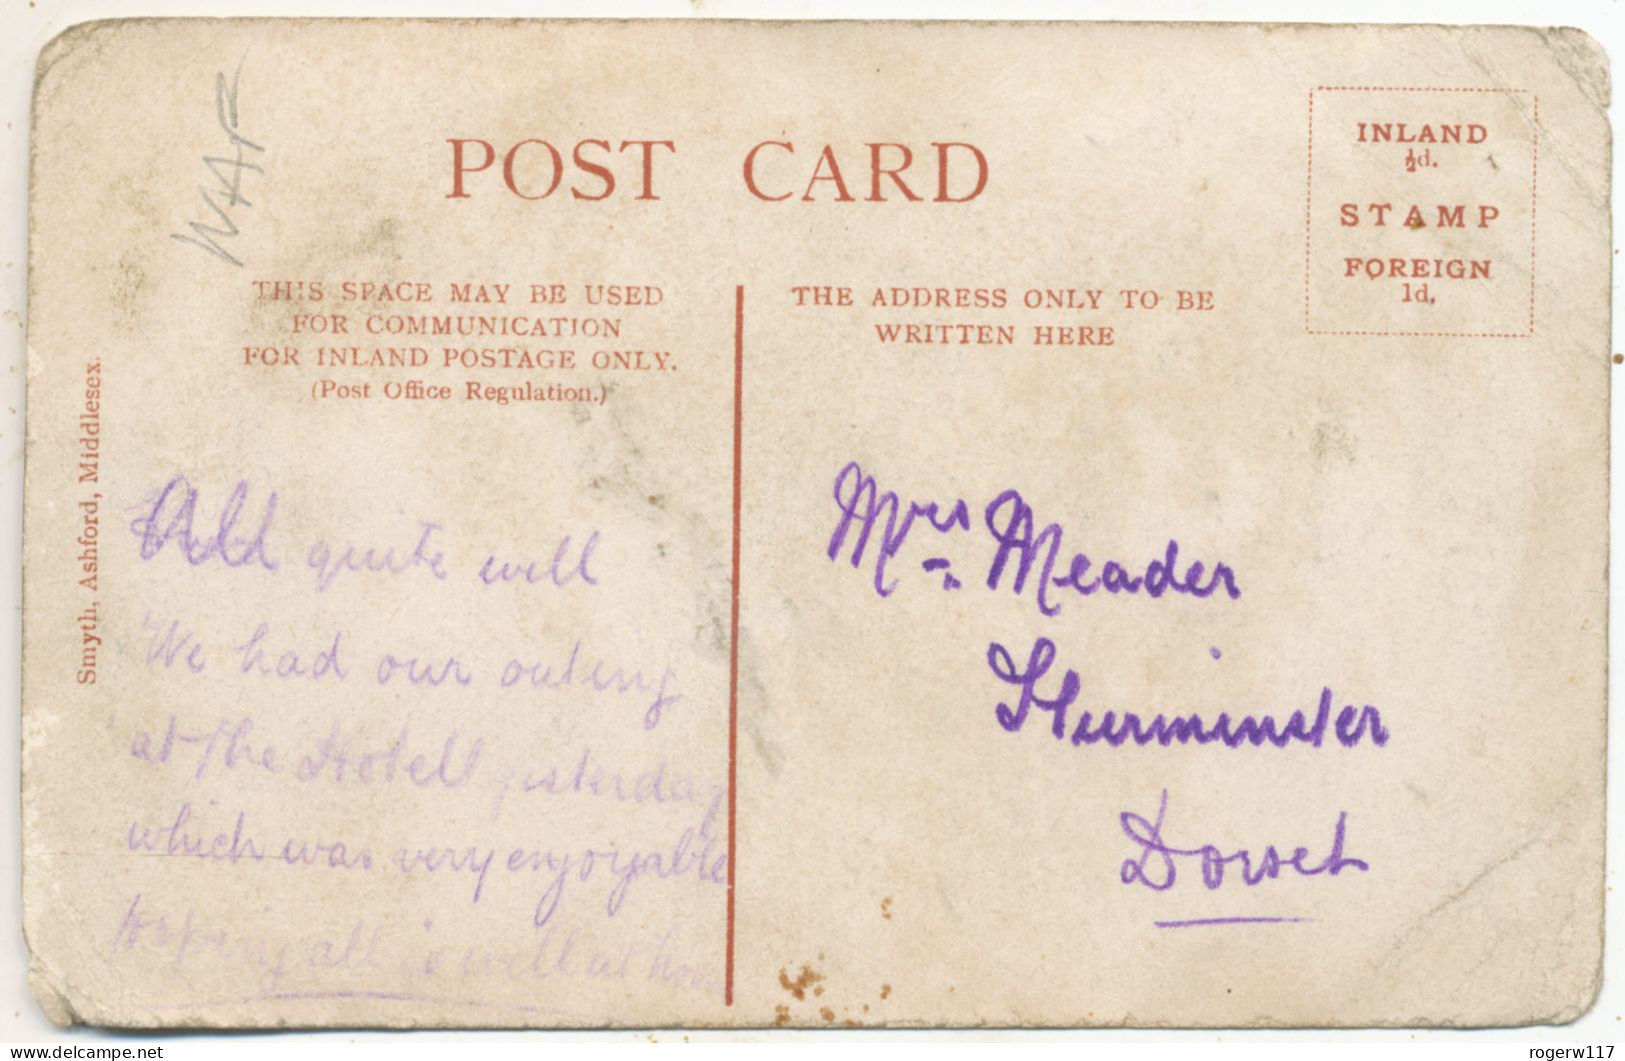 POST CARD
INLAND
½d.
STAMP
FOREIGN
1d.
WAR
THIS SPACE MAY BE USED
FOR COMMUNICATION
FOR INLAND POSTAGE ONLY.
(Post Office Regulation.)
THE ADDRESS ONLY TO BE
WRITTEN HERE
Smyth, Ashford, Middlesex.
quite well
We had our outing
at the Hotell yesterday
which was very enjoyable
Hopping all is well at home
Mrs. Meader
Sturminster
Dorset
delcampe.net
rogerw117